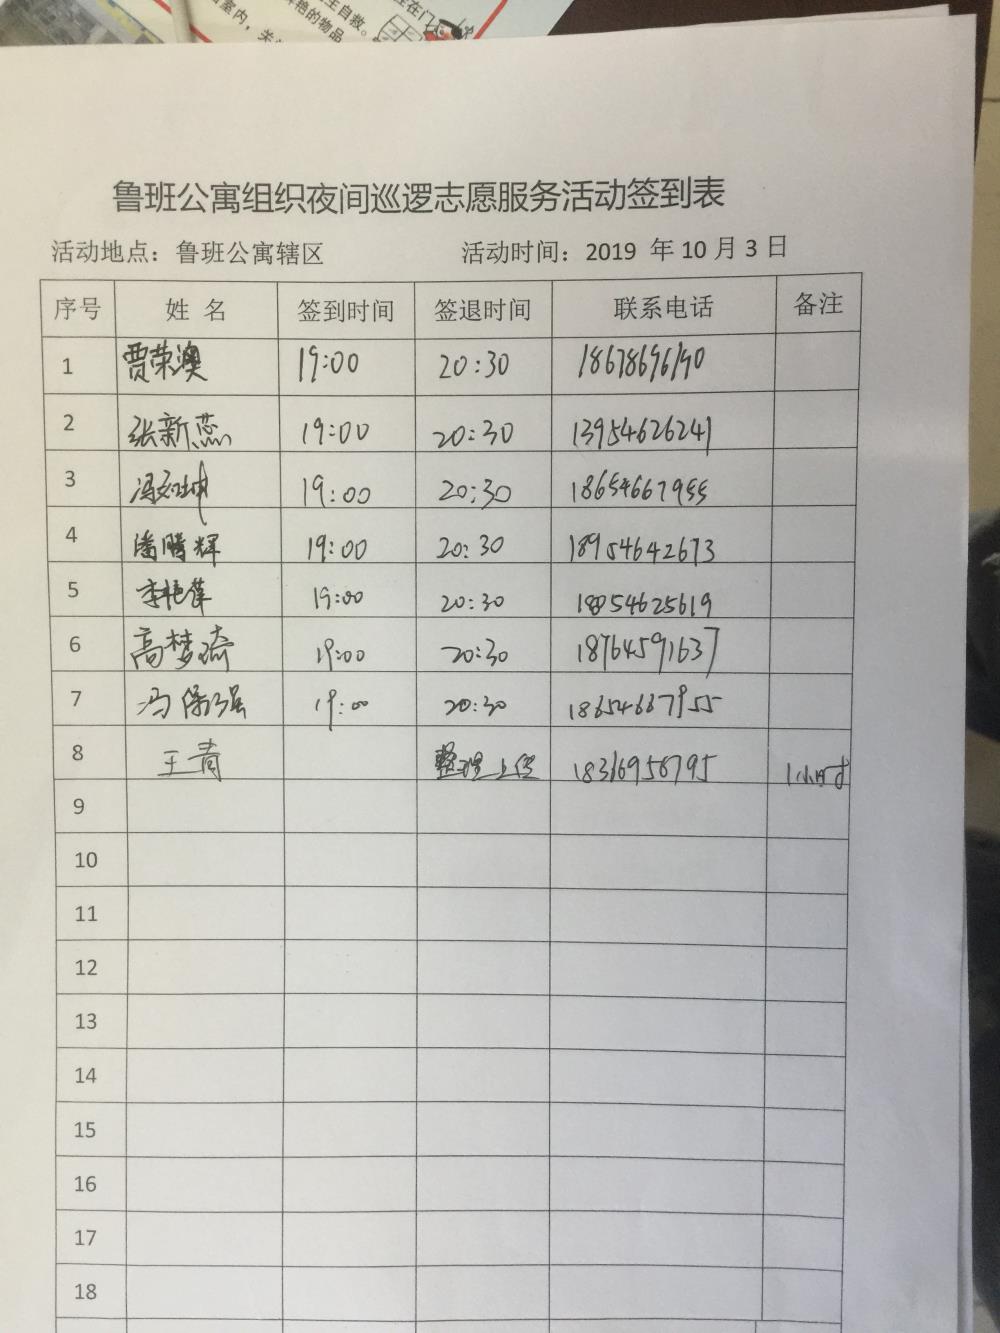 鲁班公寓组织夜间巡逻志愿服务活动签到表
活动地点：鲁班公寓辖区 活动时间：2019 年 10 月 3 日
序号 姓 名 签到时间 签退时间 联系电话 备注
1 贾荣澳 19:00 20:30 18678696190
2 张新蕊 19:00 20:30 13954626241
3 19:00 20:30 18654667955
4 潘腾辉 19:00 20:30 18954642673
5 李艳萍 19:00 20:30 18054625619
6 高梦琦 19:00 20:30 18764591637
7 冯保强 19:00 20:30 18654667955
8 王青 整理上传 18316958795 1小时
9
10
11
12
13
14
15
16
17
18